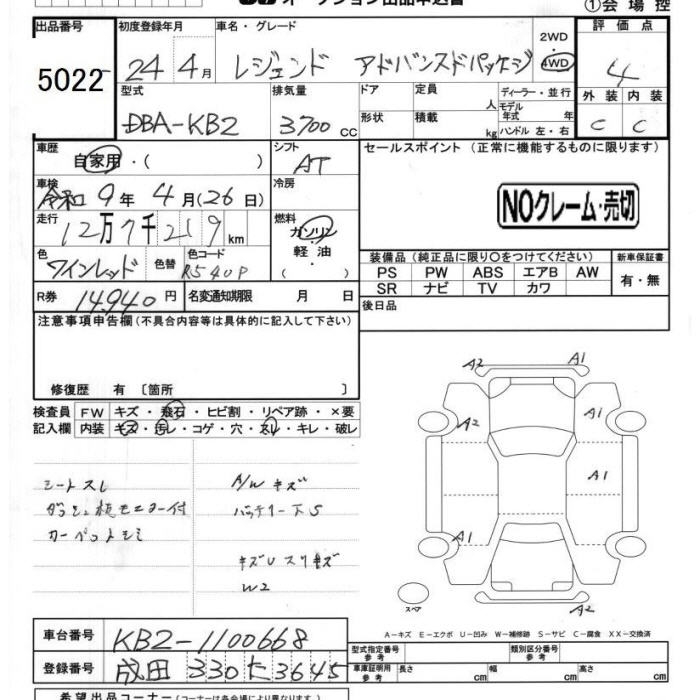 オークション出品申込書
①会場控
出品番号
5022
初度登録年月
24年 4月
車名・グレード
レジェンド アドバンスドパッケージ
2WD
・
4WD
評価点
4
外装 内装
C C
型式
DBA-KB2
排気量
3700 CC
ドア
形状
定員
人
積載
kg
ディーラー・並行
モデル年式 年
ハンドル 左・右
車歴
自家用・( )
シフト
AT
車検
令和 9年 4月(26日)
冷房
走行
12万7千219km
燃料
ガソリン
軽油
・
色
ワインレッド
色替
色コード
R540P
R券
14,940円
名変通知期限 月 日
セールスポイント (正常に機能するものに限ります)
NOクレーム・売切
装備品(純正品に限り〇をつけてください)
PS PW ABS エアB AW
SR ナビ TV カワ
新車保証書
有・無
後日品
注意事項申告欄(不具合内容等は具体的に記入して下さい)
修復歴 有 〔箇所 〕
検査員記入欄
FW キズ・飛石・ヒビ割・リペア跡・×要
内装 キズ・汚レ・コゲ・穴・スレ・キレ・破レ
シートスレ
ダッシュ板モニター付
カーペットシミ
A/Wキズ
バッテリー下S
キズUスリキズ
W2
A2
A1
A2
A1
A1
A1
A2
スペア
A-キズ E-エクボ U-凹み W-補修跡 S-サビ C-腐食 XX-交換済
車台番号
KB2-1100668
登録番号
成田 330 た 3645
型式指定番号
参考
類別区分番号
参考
車庫証明用
参考
長さ cm
幅 cm
高さ cm
希望出品コーナー(コーナーは各会場により異なります)